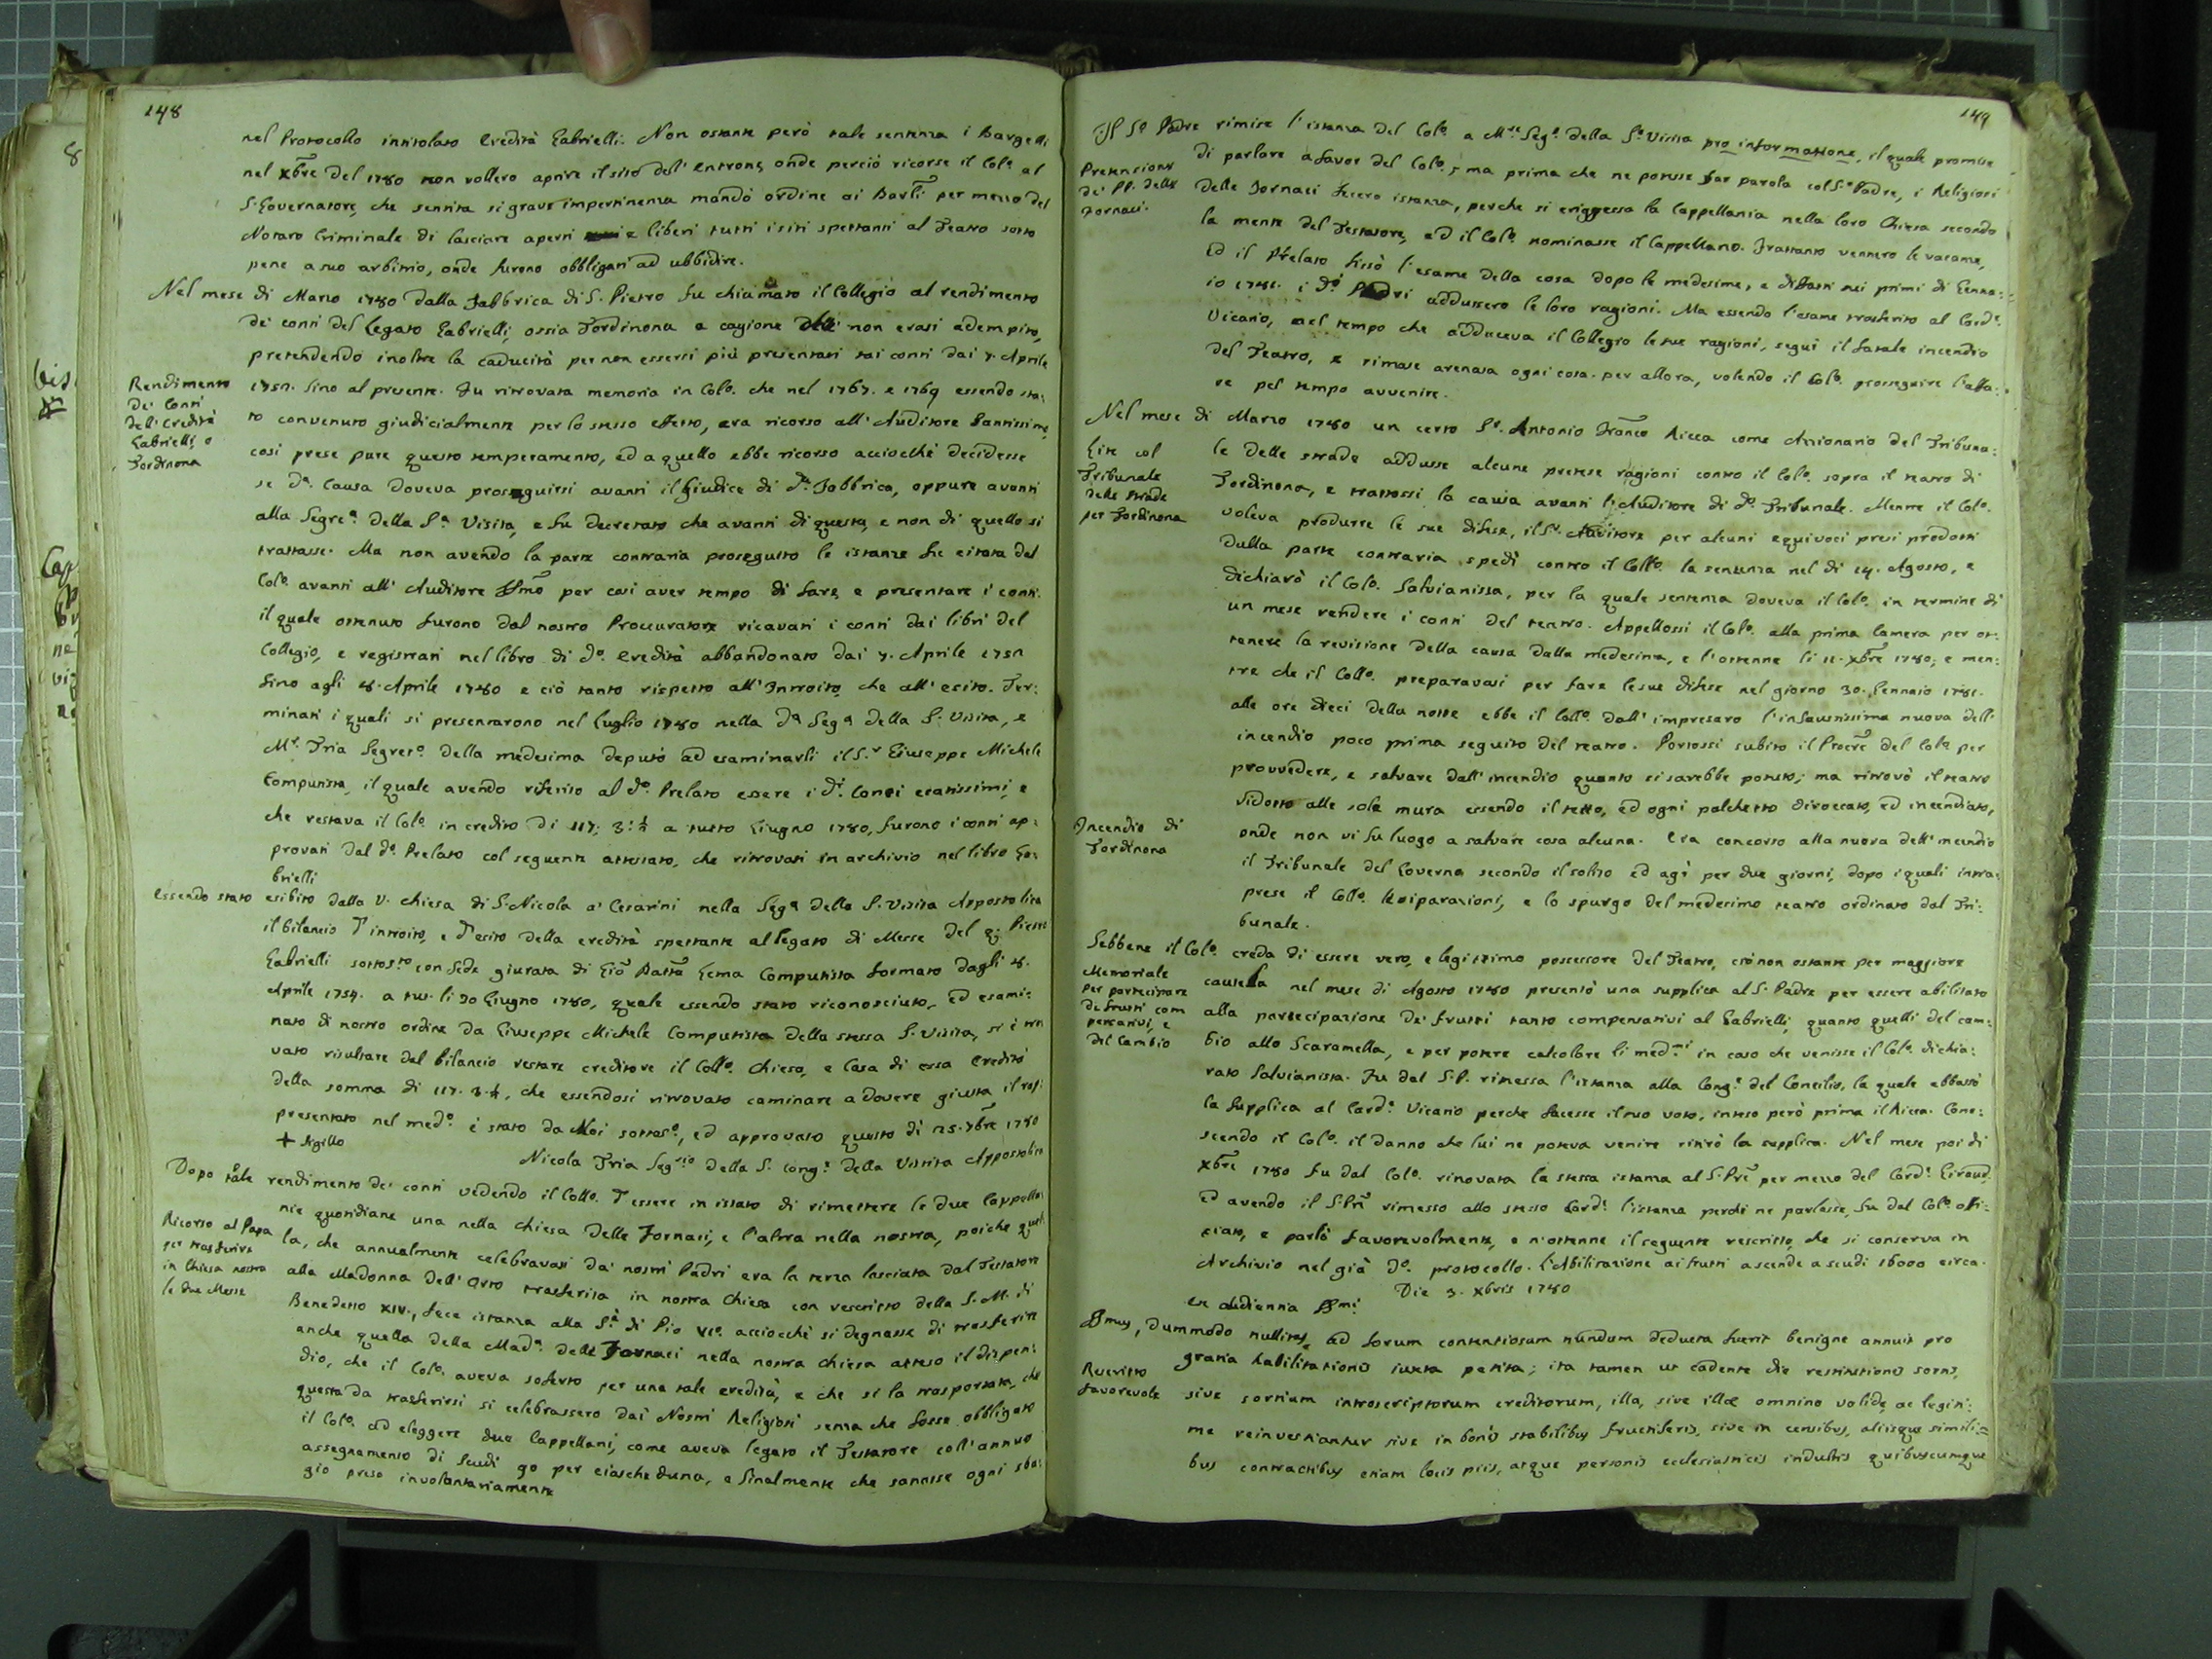 148
nel Protocollo intitolato Eredità Gabrielli. Non ostante però tale sentenza i Bargelli
nel Xbre del 1780 non vollero aprire il sito dell' Entrone, onde perciò ricorse il Colo. al
S. Governatore, che sentita si grave impertinenza mandò ordine ai Barli. per mezzo del
Notaro Criminale di lasciare aperti e liberi tutti i siti spettanti al Teatro sotto
pene a suo arbitrio, onde furono obbligati ad ubbidire.
Nel mese di Marzo 1780 dalla Fabbrica di S. Pietro fu chiamato il Collegio al rendimento
de' conti del Legato Gabrielli, ossia Tordinona a cagione non erasi adempito,
pretendendo inoltre la caducità per non essersi più presentati tai conti dai 7. Aprile
Rendimento
de' Conti
dell' Eredità
Gabrielli, o
Tordinona
1757. sino al presente. Fu ritrovata memoria in Colo. che nel 1767. e 1769 essendo sta:
to convenuto giudicialmente per lo stesso effetto, era ricorso all' Auditore Santissimo,
così prese pure questo temperamento, ed a quello ebbe ricorso acciocchè decidesse
se da. Causa doveva proseguirsi avanti il Giudice di da. Fabbrica, oppure avanti
alla Segre.a della S.a Visita, e fu decretato che avanti di questa, e non di quello si
trattasse. Ma non avendo la parte contraria proseguito le istanze fu citata dal
Colo. avanti all' Auditore SSmo per così aver tempo di fare, e presentare i conti.
il quale ottenuto furono dal nostro Procuratore ricavati i conti dai libri del
Collegio, e registrati nel libro di do. Eredità abbandonato dai 7. Aprile 1757
sino agli 8. Aprile 1780 e ciò tanto rispetto all' Introito, che all' esito. Ter:
minati i quali si presentarono nel Luglio 1780 nella da Sega della S. Visita, e
Mr. Tria Segreto. della medesima deputò ad esaminarli il S.r Giuseppe Michele
Computista, il quale avendo riferito al do. Prelato essere i di. Conti esatissimi, e
che restava il Colo. in credito di 117: 3: ½ a tutto Giugno 1780, furono i conti ap:
provati dal do. Prelato col seguente attestato, che ritrovasi in archivio nel libro Ga:
brielli
Essendo stato esibito dalla V. Chiesa di S. Nicola a' Cesarini nella Sega della S. Visita Appostolica
il bilancio d'introito, e d'esito della eredità spettante al Legato di Messe del q. Pietro
Gabrielli sottosto con fede giurata di Gio Batta Gema Computista formato dagli 8.
Aprile 1757. a tut. li 30 Giugno 1780, quale essendo stato riconosciuto, ed esami:
nato di nostro ordine da Giuseppe Michele Computista della stessa S. Visita, si è tro
vato risultare dal bilancio restare creditore il Collo. Chiesa, e Casa di essa Eredità
della somma di 117. 3. ½, che essendosi ritrovato caminare a dovere giusta il rap:
presentato nel medo. è stato da Noi sottoso., ed approvato questo dì 25. 7bre 1780
+ Sigillo
Nicola Tria Segrio della S. Cong.e della Visita Appostolica
Dopo tale rendimento de' conti vedendo il Collo. d'essere in istato di rimettere le due Cappella:
nie quotidiane una nella Chiesa delle Fornaci, e l'altra nella nostra, poichè quel
Ricorso al Papa
per trasferire
in Chiesa nostra
le due Messe
la, che annualmente celebravasi da' nostri Padri era la terza lasciata dal Testatore
alla Madonna dell' Orto trasferita in nostra Chiesa con rescritto della S. M. di
Benedetto XIV., fece istanza alla S.à di Pio VIo. acciocchè si degnasse di trasferire
anche quella della Mad.a delle Fornaci nella nostra Chiesa atteso il dispen:
dio, che il Colo. aveva soferto per una tale eredità, e che si la trasportata, che
questa da trasferirsi si celebrassero dai Nostri Religiosi senza che fosse obbligato
il Colo. ad eleggere due Cappellani, come aveva legato il Testatore coll' annuo
assegnamento di Scudi 90 per ciascheduna, e finalmente che sanasse ogni sba:
glio preso involontariamente
149
Il So. Padre rimise l' istanza del Colo. a Mre. Sego. della Sa. Visita pro informatione, il quale promise
Pretensione
de' PP. delle
Fornaci.
di parlare a favor del Colo., ma prima che ne potesse far parola col So. Padre, i Religiosi
delle Fornaci fecero istanza, perche si eriggessa la Cappellania nella loro Chiesa secondo
la mente del Testatore, ed il Colo. nominasse il Cappellano. Frattanto vennero le vacanze,
ed il Prelato fissò l'esame della cosa dopo le medesime, e difatti nei primi di Genna:
io 1781. i di. Padri addussero le loro ragioni. Ma essendo l'esame trasferito al Carde.
Vicario, nel tempo che adduceva il Collegio le sue ragioni, seguì il fatale incendio
del Teatro, e rimase arenata ogni cosa. per allora, volendo il Colo. proseguire l'affa:
re pel tempo avvenire.
Nel mese di Marzo 1780 un certo Sr. Antonio Franco Ricca come Azzionario del Tribuna:
Lite col
Tribunale
delle strade
per Tordinona
le delle strade addusse alcune pretese ragioni contro il Colo. sopra il teatro di
Tordinona, e trattossi la causa avanti l'Auditore di do. Tribunale. Mentre il Colo.
voleva produrre le sue difese, il Sr. Auditore per alcuni equivoci presi prodotti
dalla parte contraria spedì contro il Collo. la sentenza nel dì 14. Agosto, e
dichiarò il Colo. Salvianista, per la quale sentenza doveva il Colo. in termine di
un mese rendere i conti del teatro. Appellossi il Colo. alla prima Camera per ot:
tenere la revisione della causa dalla medesima, e l'ottenne li 11. Xbre 1780; e men:
tre che il Collo. preparavasi per fare le sue difese nel giorno 30. Gennaio 1781.
alle ore dieci della notte ebbe il Collo. dall' impresaro l'infaustissima nuova dell'
incendio poco prima seguito del teatro. Portossi subito il Procre del Colo. per
provvedere, e salvare dall' incendio quanto si sarebbe potuto; ma ritrovò il teatro
ridotto alle sole mura essendo il tetto, ed ogni palchetto diroccato, ed incendiato,
Incendio di
Tordinona
onde non vi fu luogo a salvare cosa alcuna. Era concorso alla nuova dell' incendio
il Tribunale del Governo secondo il solito ed agì per due giorni, dopo i quali intra:
prese il Collo. le riparazioni, e lo spurgo del medesimo teatro ordinato dal Tri:
bunale.
Sebbene il Colo. creda di essere vero, e legittimo possessore del Teatro, ciò non ostante per maggiore
Memoriale
per partecipare
de frutti com
pensativi, e
del Cambio
cautella nel mese di Agosto 1780 presentò una supplica al S. Padre per essere abilitato
alla partecipazione de' frutti tanto compensativi al Gabrielli, quanto quelli del cam:
bio allo Scaramella, e per potere calcolare li med.mi in caso che venisse il Colo. dichia:
rato Salvianista. Fu dal S.P. rimessa l'istanza alla Cong.e del Concilio, la quale abbassò
la supplica al Card.e Vicario perche facesse il suo voto, inteso però prima il Ricca. Cono:
scendo il Colo. il danno che lui ne poteva venire ritirò la supplica. Nel mese poi di
Xbre 1780 fu dal Colo. rinovata la stessa istanza al S. Pre per mezzo del Card.e Giraud,
ed avendo il S. Pre rimesso allo stesso Card.e l'istanza perchè ne parlasse, fu dal Colo. offi:
ciato, e parlò favorevolmente, e n'ottenne il seguente rescritto, che si conserva in
Archivio nel già do. protocollo. L'Abilitazione ai frutti ascende a scudi 16000 circa.
Die 3. Xbris 1780
Ex audientia SSmi.
SSmus, dummodo nullitas, ad forum contentiosum nundum deducta fuerit benigne annuit pro
Rescritto
favorevole
gratia habilitationis iuxta petita; ita tamen ut cadente die restitutionis sortis,
sive sortium introscriptorum creditorum, illa, sive illæ omnino valide, ac legiti:
me reinvestiantur sive in bonis stabilibus fructiferis, sive in censibus, aliisque simili=
bus contractibus etiam locis piis, atque personis ecclesiasticis indultis quibuscumque